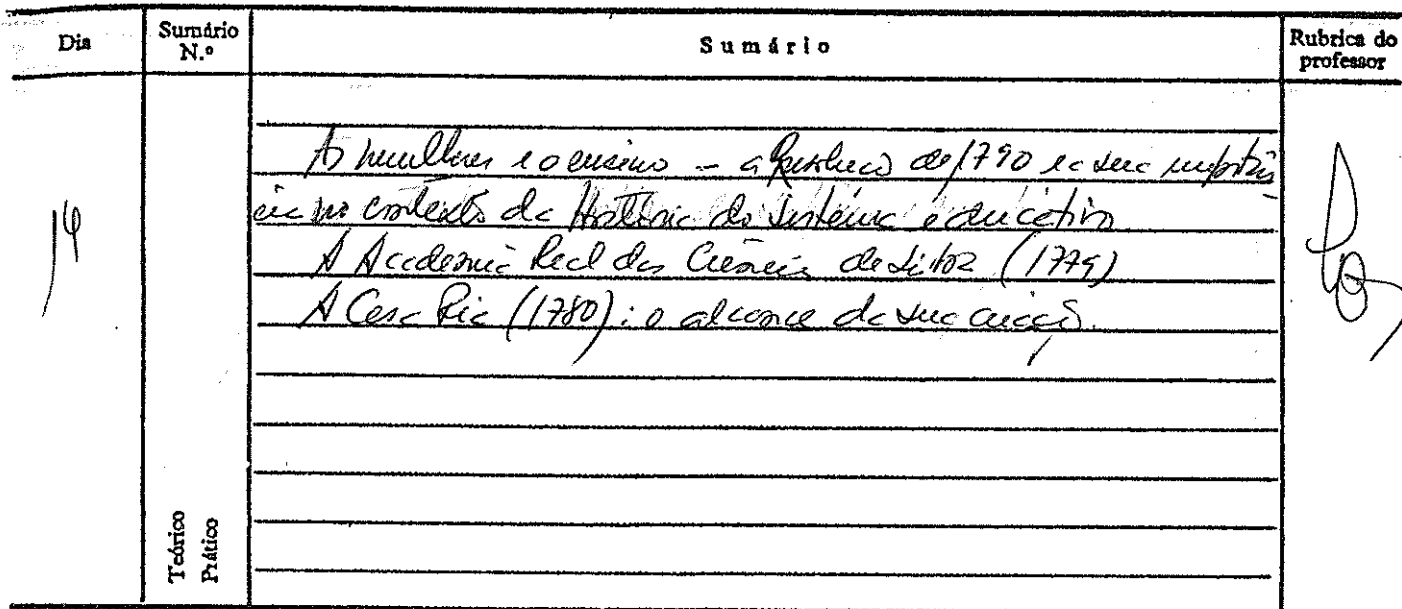 Dia
Sumário N.º
Sumário
Rubrica do professor
14
As mulheres e o ensino – a Resolução de 1790 e a sua importân-
cia no contexto da História do sistema educativo.
A Academia Real das Ciências de Lisboa (1779)
A Casa Pia (1780): o alcance da sua criação.
Teórico
Prático